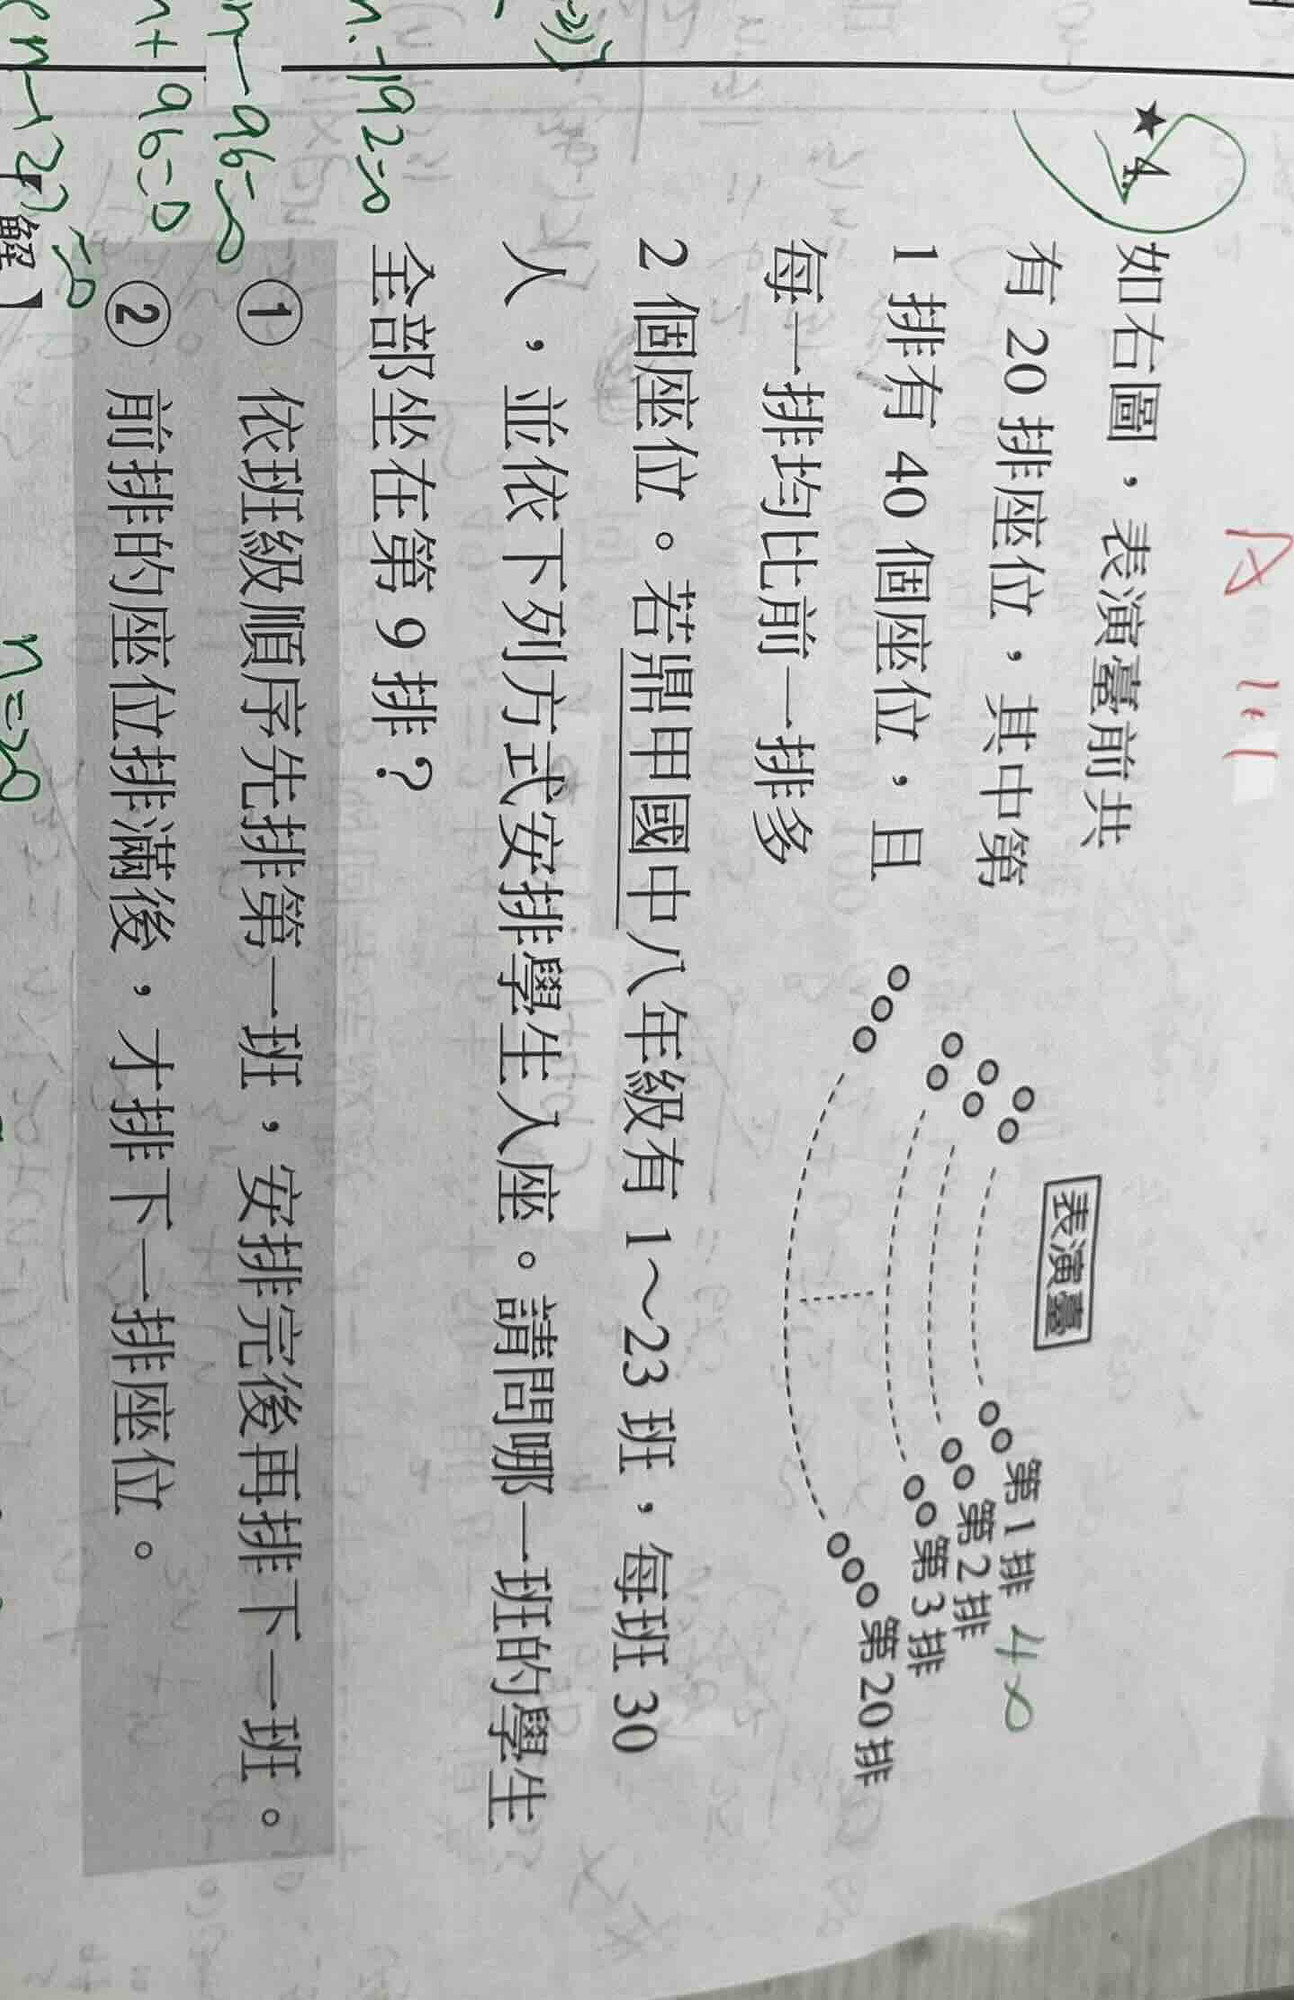 ★4.
如右圖，表演臺前共
有 20 排座位，其中第
1 排有 40 個座位，且
每一排均比前一排多
2 個座位。若鼎甲國中八年級有 1～23 班，每班 30
人，並依下列方式安排學生入座。請問哪一班的學生
全部坐在第 9 排？
① 依班級順序先排第一班，安排完後再排下一班。
② 前排的座位排滿後，才排下一排座位。
表演臺
第 1 排 40
第 2 排
第 3 排
第 20 排
n-192=0
n-96=0
n+96=0
=0
【解】
n=20